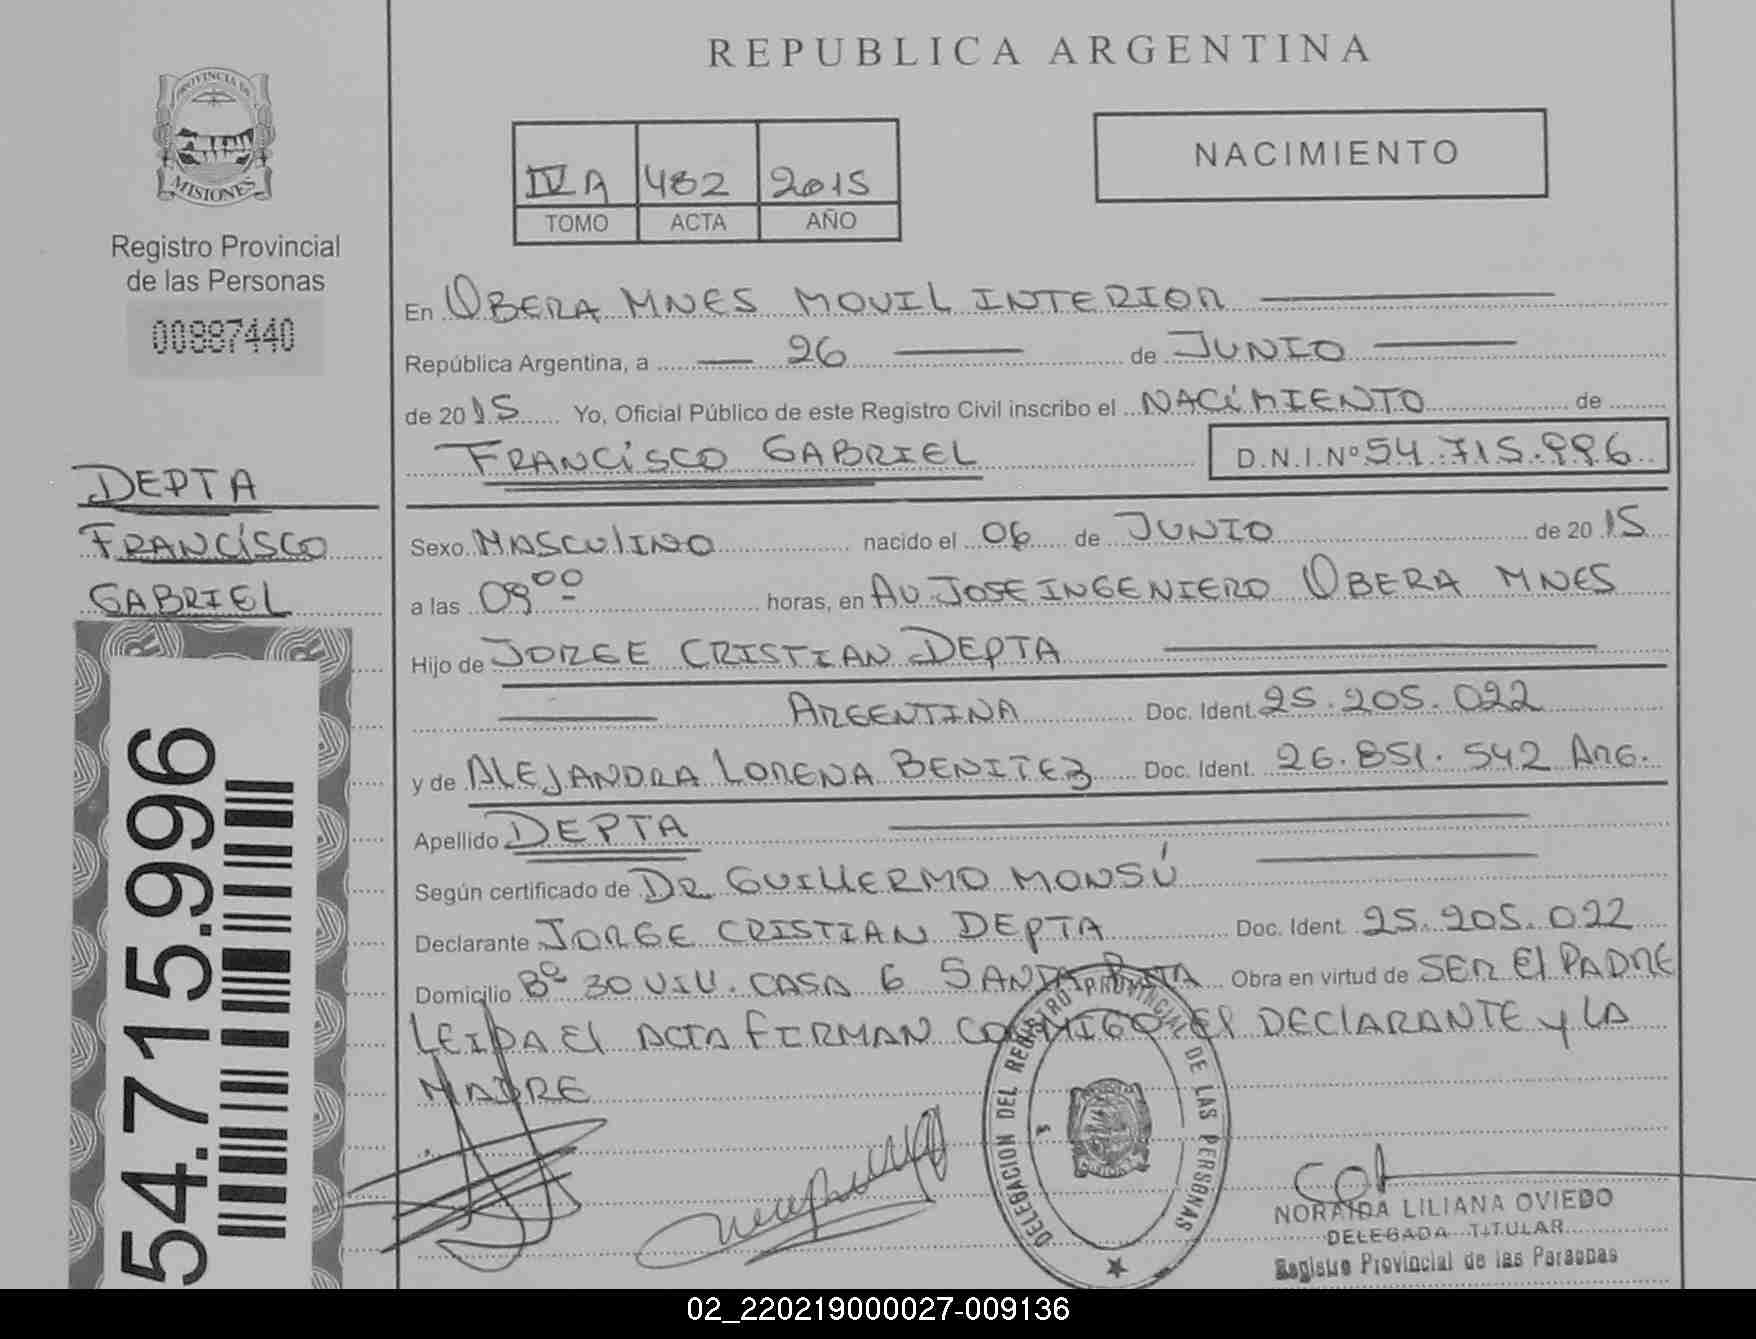 REPUBLICA ARGENTINA
PROVINCIA DE
MISIONES
Registro Provincial
de las Personas
00887440
NACIMIENTO
IV A 482 2015
TOMO ACTA AÑO
En OBERA MNES MOVIL INTERIOR
República Argentina, a 26 de JUNIO
de 2015 Yo, Oficial Público de este Registro Civil inscribo el NACIMIENTO de
FRANCISCO GABRIEL D.N.I.Nº 54.715.996
DEPTA
FRANCISCO
GABRIEL
54.715.996
Sexo MASCULINO nacido el 06 de JUNIO de 2015
a las 09 00 horas, en AV JOSE INGENIERO OBERA MNES
Hijo de JORGE CRISTIAN DEPTA
ARGENTINA Doc. Ident. 25.205.022
y de ALEJANDRA LORENA BENITEZ Doc. Ident. 26.851.542 ARG.
Apellido DEPTA
Según certificado de DR GUILLERMO MONSÚ
Declarante JORGE CRISTIAN DEPTA Doc. Ident. 25.205.022
Domicilio Bº 30 VIV. CASA 6 SANTA RITA Obra en virtud de SER El PADRE
LEIDA El ACTA FIRMAN CONMIGO El DEClARANTE y LA
MADRE
DELEGACION DEL REGISTRO PROVINCIAL DE LAS PERSONAS
NORAIDA LILIANA OVIEDO
DELEGADA TITULAR
Registro Provincial de las Personas
02_220219000027-009136